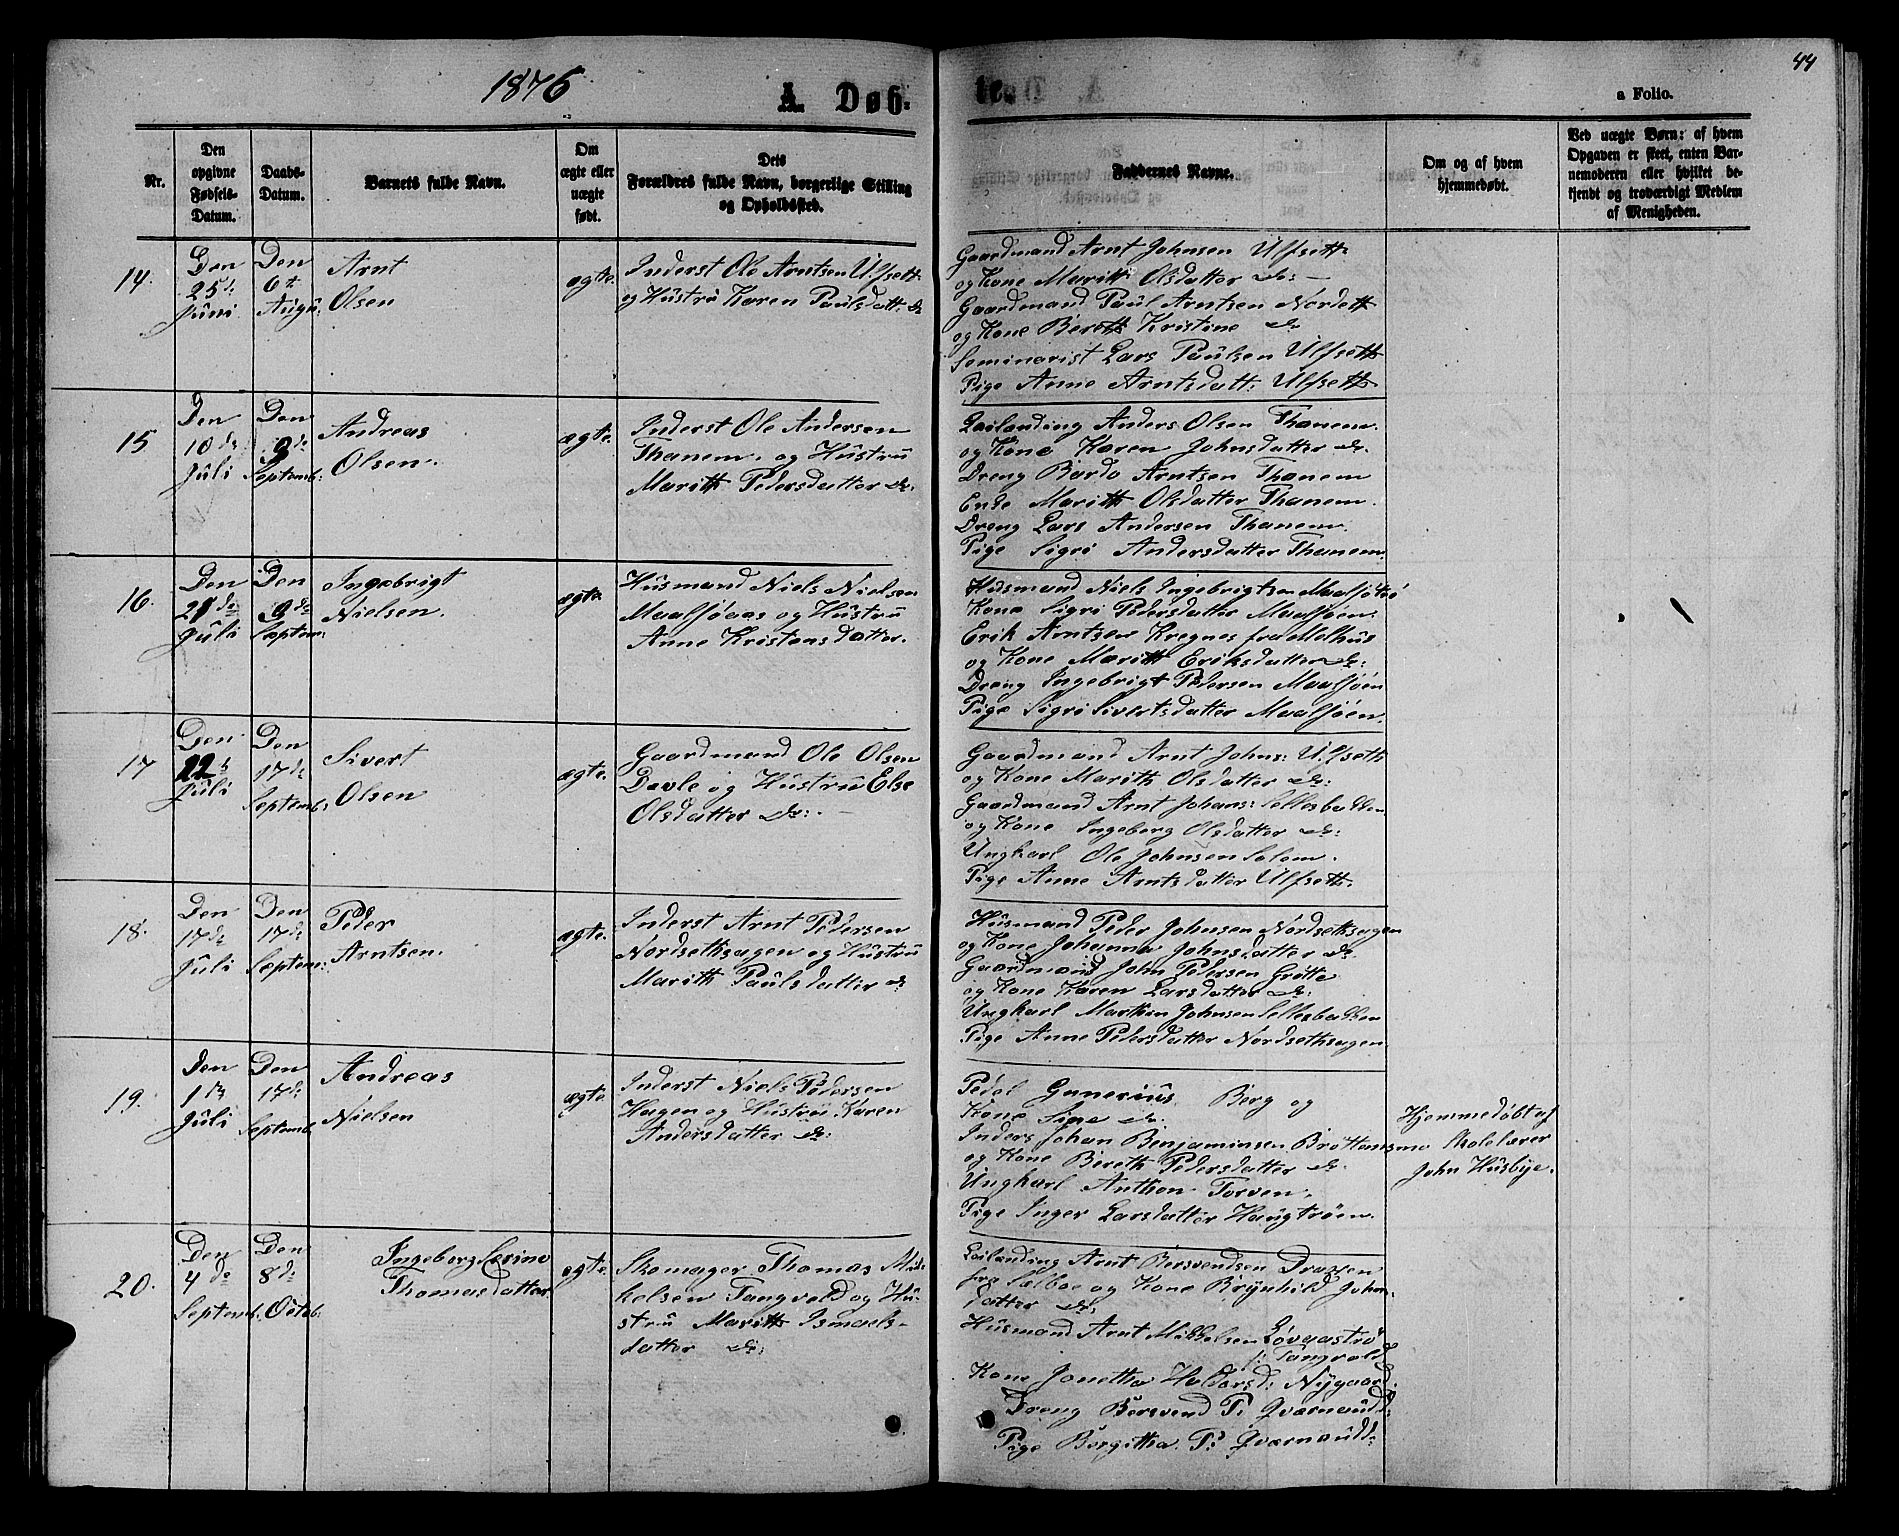 1876
A. Døb.
Nr.
Den
opgivne
Fødsels-
Datum.
Daabs-
Datum.
Barnets fulde Navn.
Om
ægte eller
uægte
født.
Dets
Forældres fulde Navn, borgerlige Stilling
og Opholdssted.
14.
Den
25de
Juni
Den
6te
Augu:
Arnt
Olsen
ægte.
Inderst Ole Arntsen Ulfsett
og Hustru Karen Paulsdatt: do
15
Den
10de
Juli
Den
3de
Septemb:
Andreas
Olsen.
ægte.
Inderst Ole Andersen
Thanem. og Hustru
Marith Pedersdatter do.
16.
Den
21de
Juli
Den
3de
Septem:
Ingebrigt
Nielsen.
ægte.
Husmand Niels Nielsen
Maalsjøaas og Hustru
Anne Kristensdatter.
17
Den
22de
Juli
Den
17de
Septemb:
Sivert
Olsen
ægte.
Gaardmand Ole Olsen
Davle og Hustru Else
Olsdatter do:
18.
Den
17de
Juli
Den
17de
Septem:
Peder
Arntsen.
ægte.
Inderst Arnt Pedersen
Nordsethsagen og Hustru
Marith Paulsdatter do
19.
Den
1ste
Juli
Den
17de
Septemb
Andreas
Nielsen
ægte.
Inderst Niels Pedersen
Hagen og Hustru Karen
Andersdatter do:
20.
Den
4de
Septemb.
Den
8de
Octob:
Ingeborg Serine
Thomasdatter
ægte.
Skomager Thomas Mik-
kelsen Tangvold og Hu-
stru Marith Ismaels-
datter do:
44
a Folio.
Faddernes Navne.
Om og af hvem
hjemmedøbt.
Ved uægte Børn: af hvem
Opgaven er skeet, enten Bar-
nemoderen eller hvilket be-
kjendt og troværdigt Medlem
af Menigheden.
Gaardmand Arnt Johnsen Ulfsett
og Kone Marith Olsdatter do:
Gaardmand Paul Arntsen Nordett
og Kone Bereth Kristine do
Seminarist Lars Paulsen Ulfseth
Pige Anne Arntsdatt: Ulfseth
Leilænding Anders Olsen Thanem.
og Kone Karen Johnsdatter do.
Dreng Bardo Arntsen Thanem
Enke Marith Olsdatter Thanem.
Dreng Lars Andersen Thanem.
Pige Sigri Andersdatter Thanem.
Husmand Niels Ingebrigtsen Maalsjötrö
Kone Sigri Pedersdatter Maalsjøen.
Erik Arntsen Kregnes fra Melhus
og Kone Marith Eriksdatter do:
Dreng Ingebrigt Pedersen Maalsjøen
Pige Sigri Sivertsdatter Maalsjøen.
Gaardmand Arnt Johns: Ulfseth
og Kone Marith Olsdatter do:
Gaardmand Arnt Johans: Sellesbakken
og Kone Ingeborg Olsdatter do:
Ungkarl Ole Johnsen Solem.
Pige Anne Arntsdatter Ulfseth.
Husmand Peder Johnsen Nordsethsagen
og Kone Johanna Johnsdatter do.
Gaardmand John Pedersen Grötte
og Kone Karen Larsdatter do:
Ungkarl Marthin Johnsen Sellesbakken
Pige Anne Pedersdatter Nordsethsagen
Pedel Gunerius Berg og
Kone Sine do.
Inders Johan Benjaminsen Bröttemsmo
og Kone Bereth Pedersdatter do.
Ungkarl Anthon Torven.
Pige Inger Larsdatter Haugtrøen.
Hjemmedøbt af
Skolelærer
John Husbye.
Leilænding Arnt Bersvendsen Draxten
fra Selboe og Kone Brynhild John
datter do:
Husmand Arnt Mikkelsen Løvaastrø
/: Tangvold
Kone Jonetta Haldorsd: Nygaard.
Dreng Bersvend T: Qværnaadd:
Pige Borgitha. T: Qværnaadd: